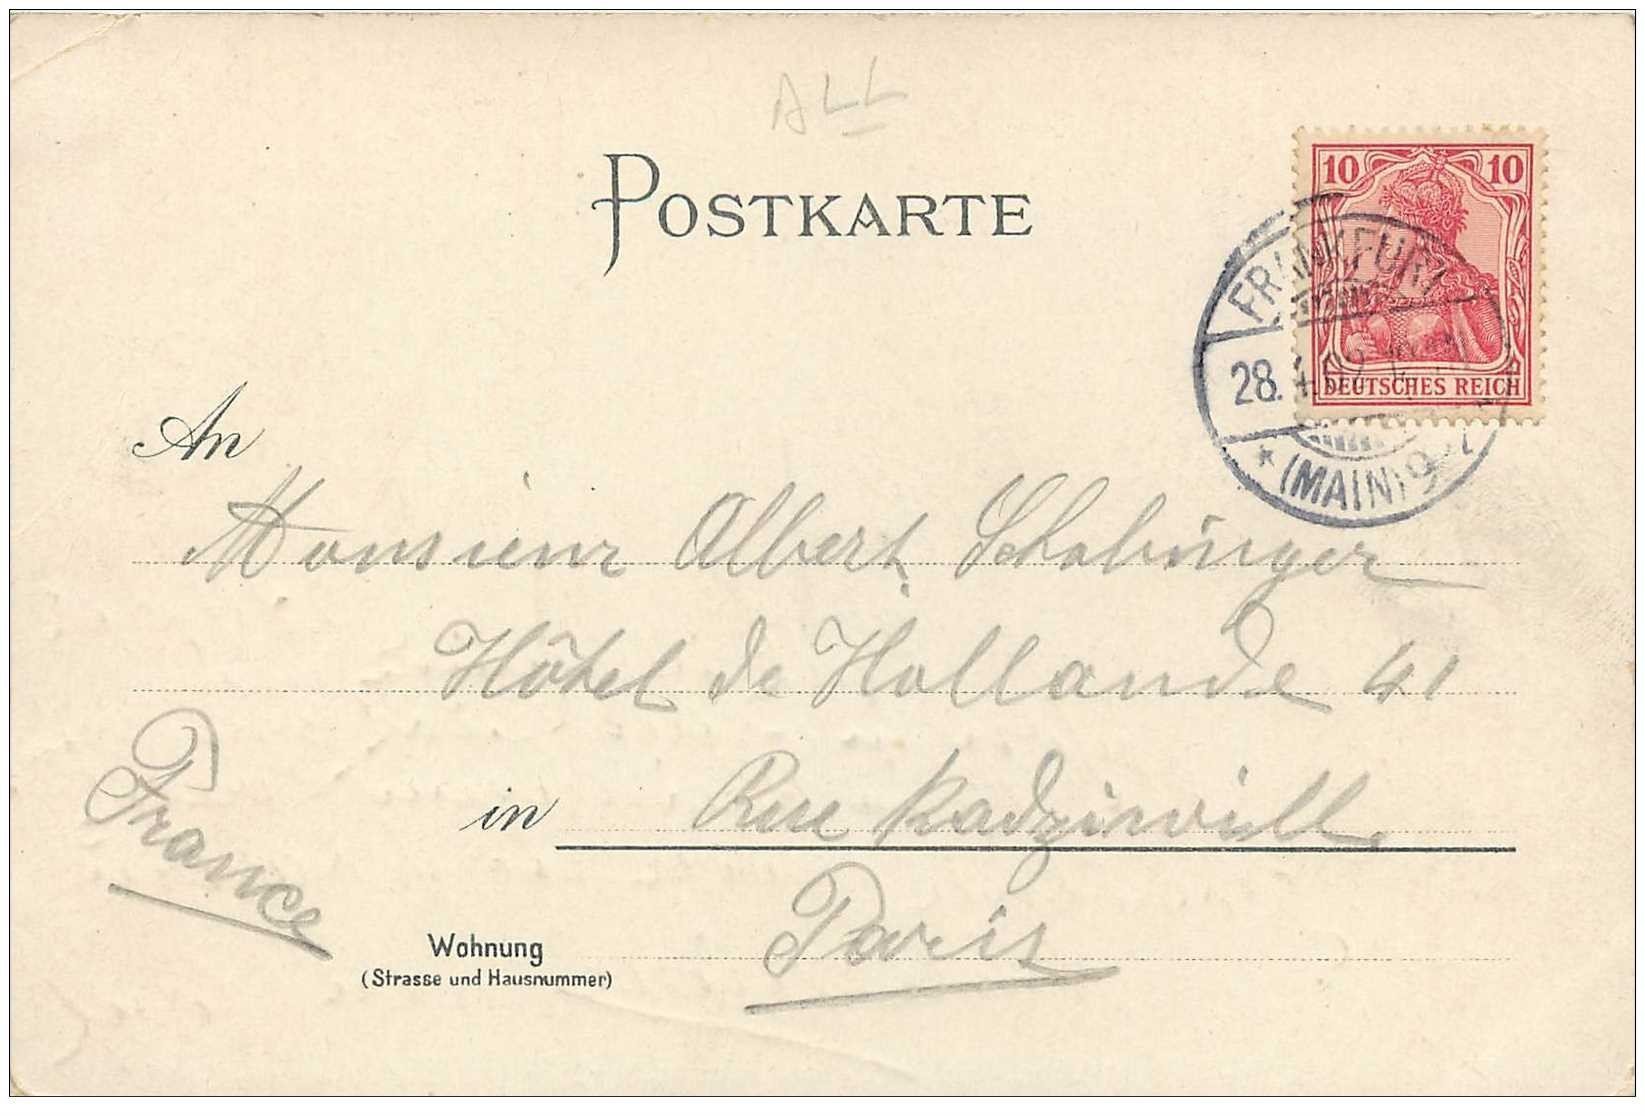 ALL
POSTKARTE
10 10
DEUTSCHES REICH
FRANKFURT
28.
* (MAIN) 9
An
Monsieur Albert Schaburger
Hôtel de Hollande 41
in Rue Radziwill,
Paris
France
Wohnung
(Strasse und Hausnummer)